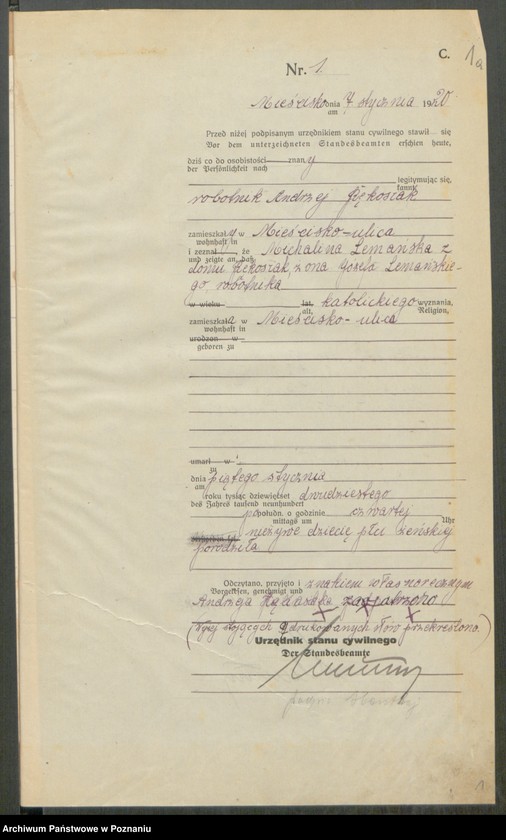 C.
1a
Nr. 1
Mieścisko dnia 7 stycznia 1920
am
Przed niżej podpisanym urzędnikiem stanu cywilnego stawił się
Vor dem unterzeichneten Standesbeamten erschien heute,
dziś co do osobistości znany
der Persönlichkeit nach
legitymując się,
kannt
robotnik Andrzej
zamieszkały w Mieścisko-ulica
wohnhaft in
i zeznał że Michalina Lemańska z
und zeigte an, daß
domu Rękosiak, żona Józefa Lemańskie-
go robotnika
w wieku lat, katolickiego wyznania,
alt, Religion,
zamieszkała w Mieścisko-ulica
wohnhaft in
urodzon w
geboren zu
umarł w
zu
dnia piątego stycznia
am
roku tysiąc dziewięćset dwudziestego
des Jahres tausend neunhundert
po połudn. o godzinie czwartej
mittags um Uhr
nieżywe dziecię płci żeńskiej
porodziła
Odczytano, przyjęto i znakiem własnoręcznym
Vorgelesen, genehmigt und
Andrzeja
(Wyżej stojących 9 drukowanych słów przekreślono.)
Urzędnik stanu cywilnego
Der Standesbeamte
1
Archiwum Państwowe w Poznaniu